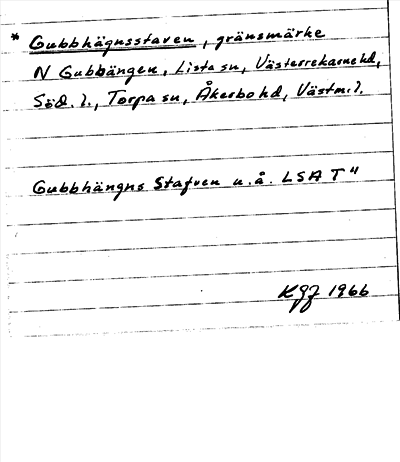 * Gubbhägnsstaven, gränsmärke
N Gubbängen, Lista sn, Västerrekarne hd,
Söd. l., Torpa sn, Åkerbo hd, Västm. l.
Gubbhängns Stafven u.å. LSA T"
KGJ 1966